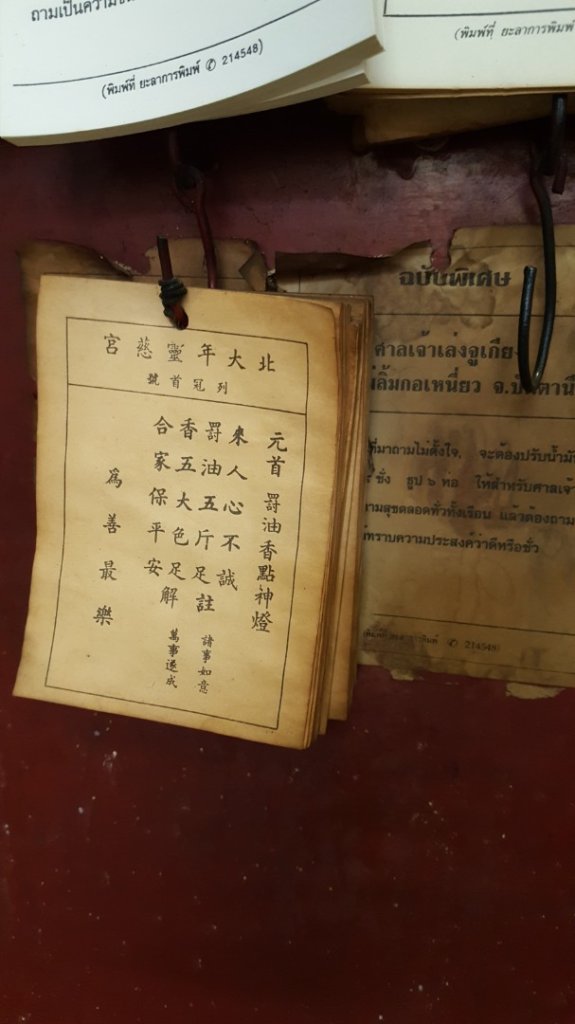 ถามเป็นความ
(พิมพ์ที่ ยะลาการพิมพ์ ✆ 214548)
(พิมพ์ที่ ยะลาการพิมพ์
北大年靈慈宮
列冠首號
元首 罸油香點神燈
來人心不誠
罸油五斤足註 諸事如意
香五大色足解 萬事遂成
合家保平安
爲善最樂
ฉบับพิเศษ
ศาลเจ้าเล่งจูเกียง
ลิ้มกอเหนี่ยว จ.ปัตตานี
ที่มาถามไม่ตั้งใจ จะต้องปรับน้ำมัน
ชั่ง ธูป ๖ ห่อ ให้สำหรับศาลเจ้า
ามสุขตลอดทั่วทั้งเรือน แล้วต้องถาม
ทราบความประสงค์ว่าดีหรือชั่ว
พิมพ์ที่ ยะลาการพิมพ์ ✆ 214548)